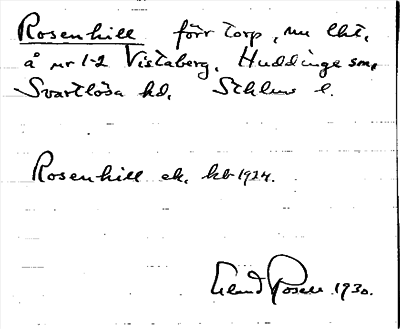 Rosenhill förr torp, nu lht,
å nr 1-2 Vistaberg. Huddinge sn,
Svartlösa hd. Sthlms l.
Rosenhill ek. kb 1924.
Erland Rosell 1930.